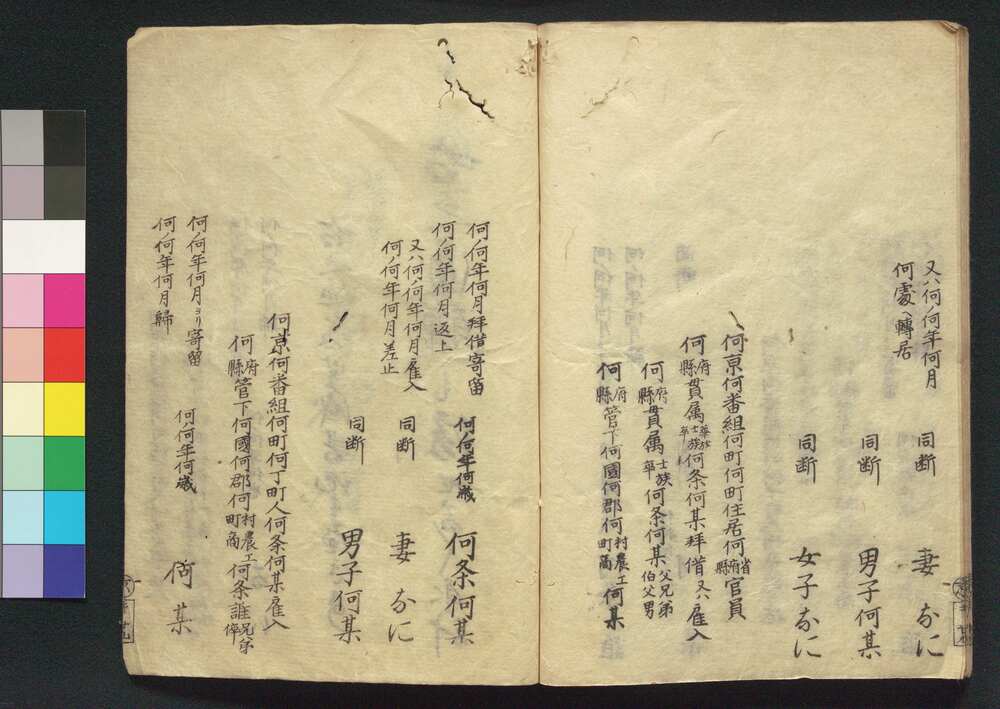 又ハ何ノ何年何月
何處ヘ轉居
同断 妻 なに
同断 男子何某
同断 女子なに
何京何番組何町何町住居何省府縣官員
何府縣貫属華族士族卒何条何某拝借又ハ雇入
何府縣貫属士族卒何条何某父兄弟伯父男
何府縣管下何國何郡何村町農工商何某
何ノ何年何月拝借寄留
何ノ何年何月返上
何ノ何年何歳 何条何某
又ハ何ノ何年何月雇入
何ノ何年何月差止
同断 妻 なに
同断 男子何某
何京何番組何町何丁町人何条何某雇入
何府縣管下何國何郡何村町農工商何条誰兄弟倅
何ノ何年何月ヨリ寄留
何ノ何年何月歸
何ノ何年何歳 何某